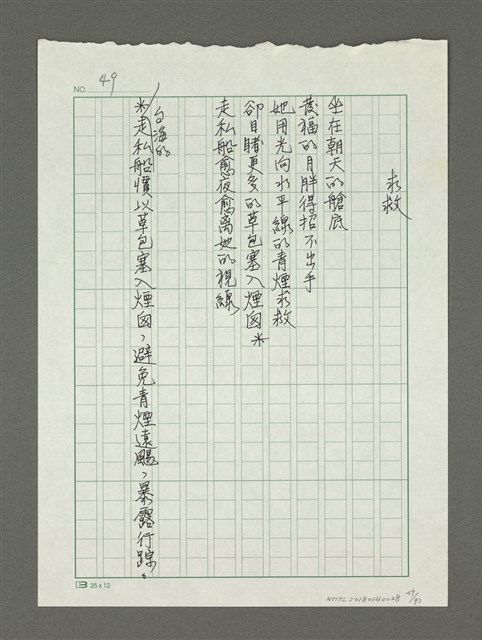 NO. 49
求救
坐在朝天的艙底
發福的月胖得招不出手
她用光向水平線的青煙求救
卻目睹更多的草包塞入煙囪※
走私船愈夜愈离她的視線
台海的
※走私船慣以草包塞入煙囪，避免青煙遠颺，暴露行踪。
25×12
NMTL20180140028
49/93